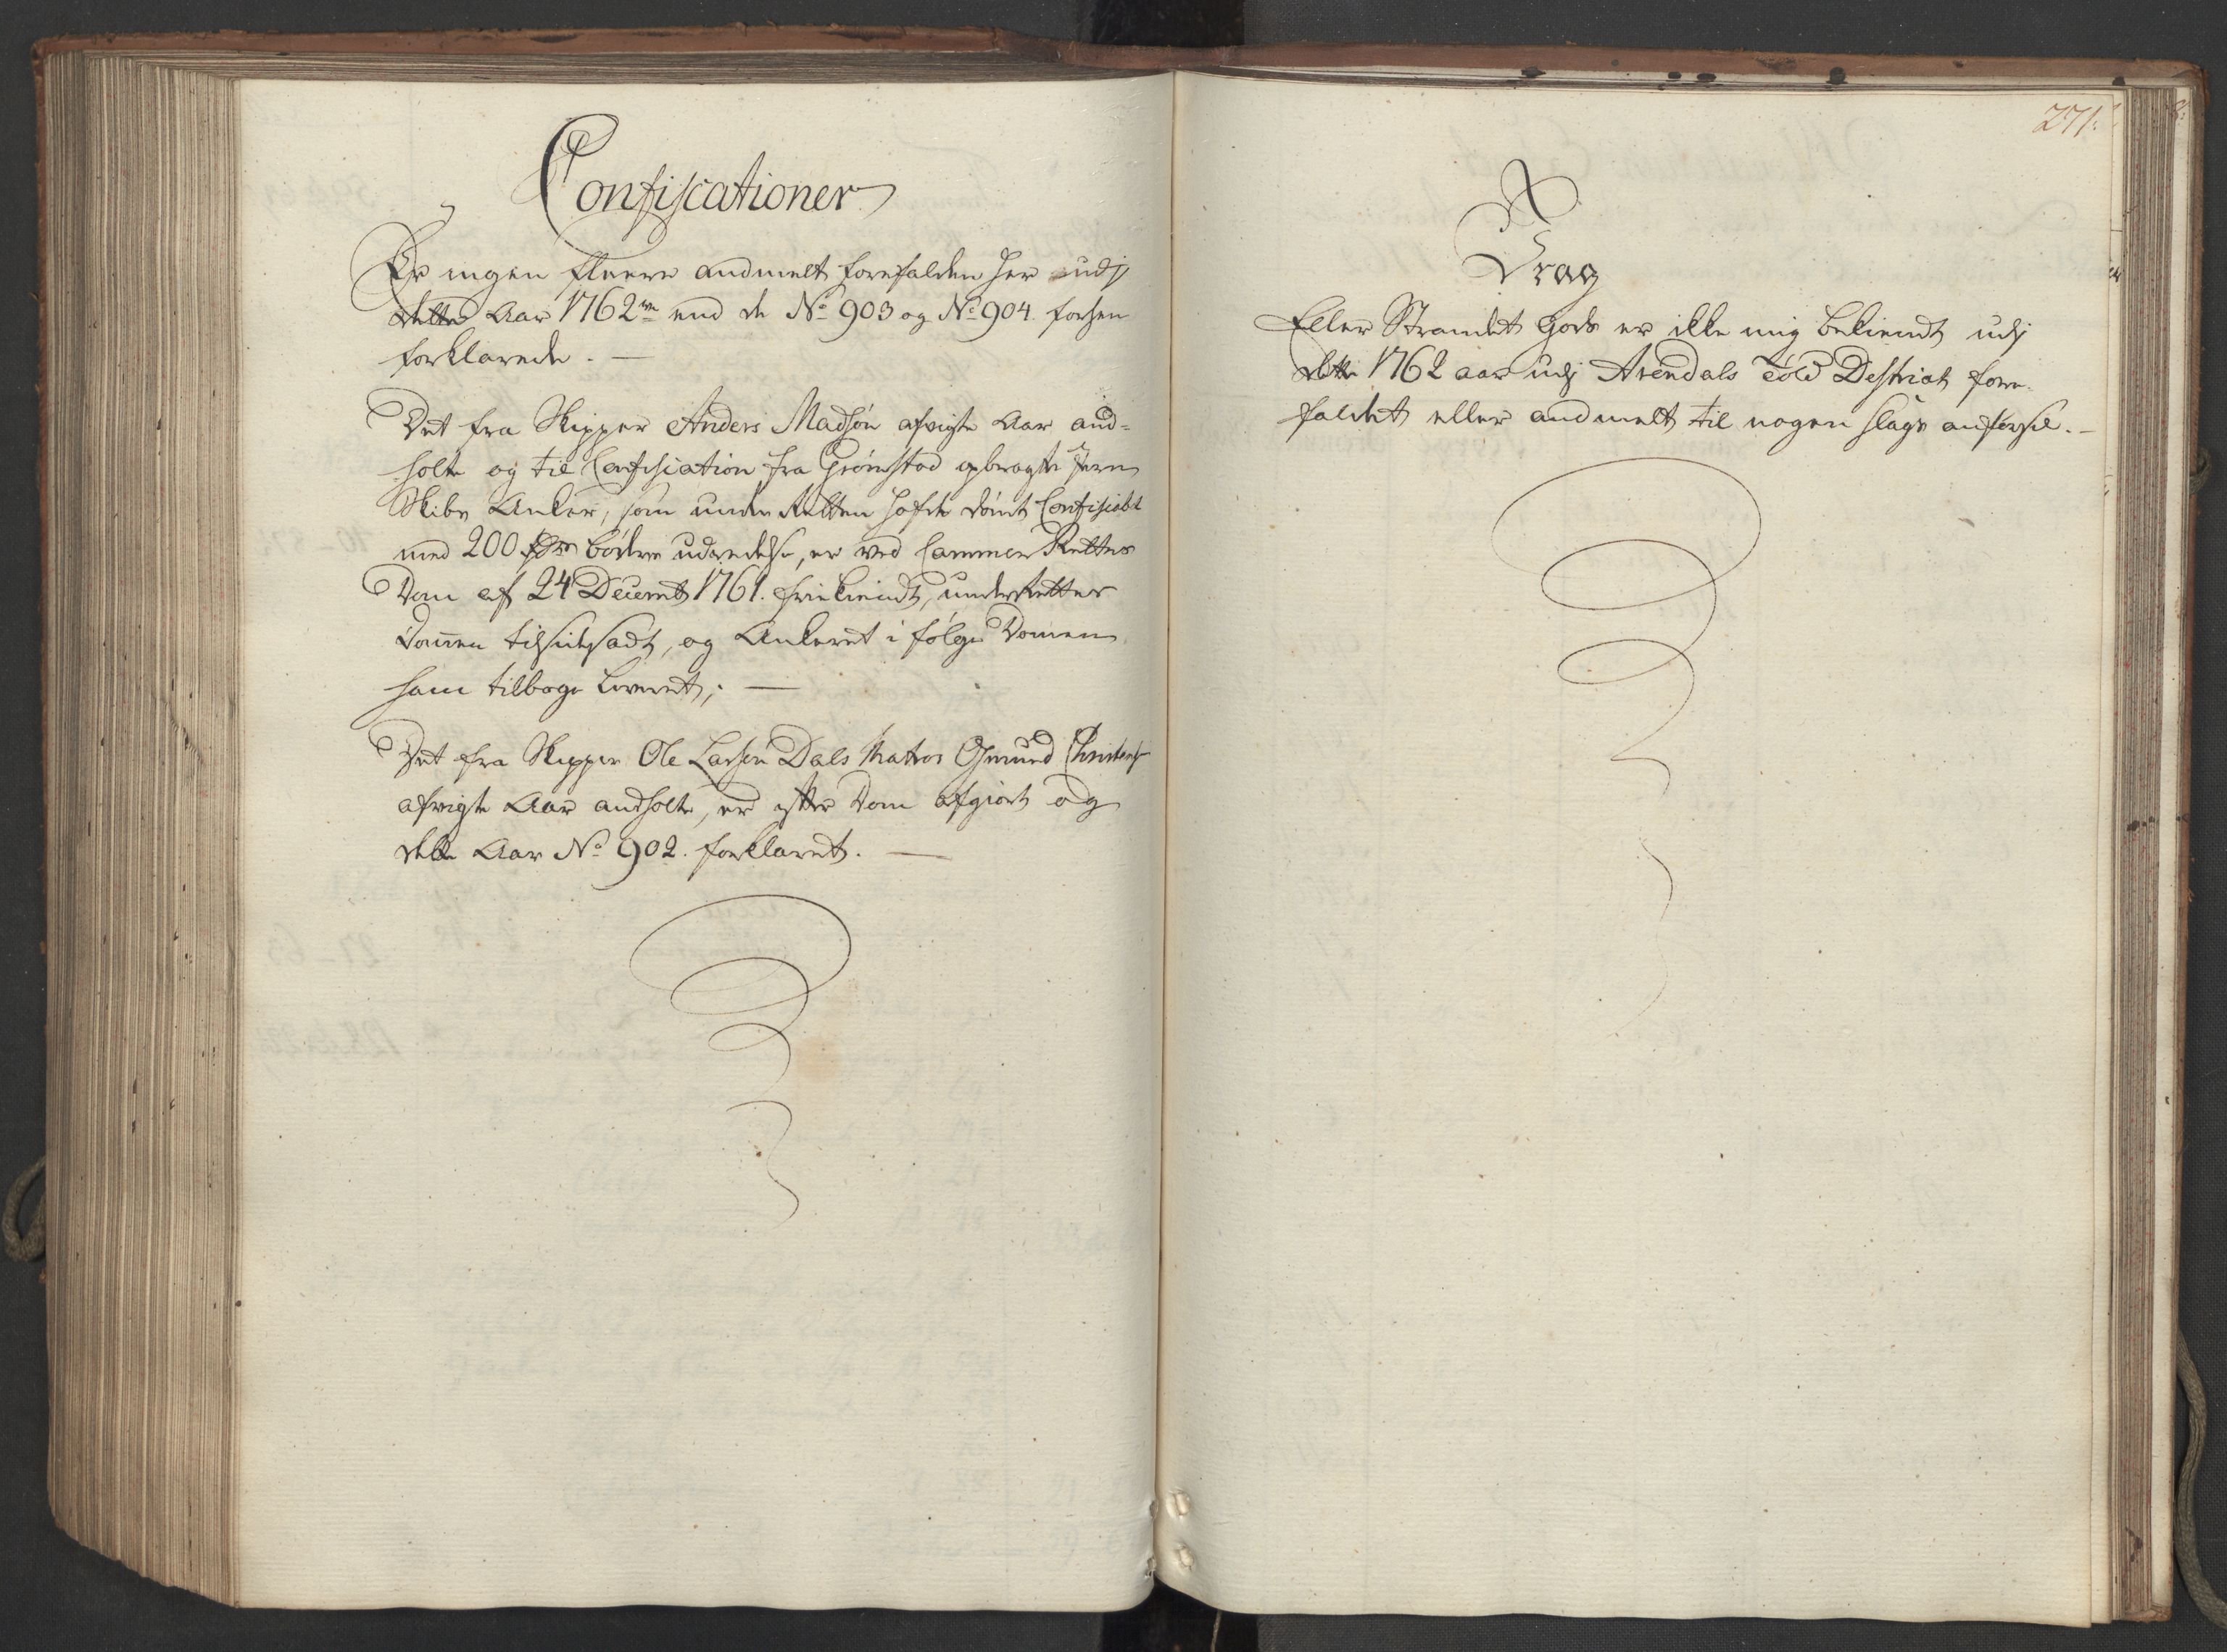 Confiscationer
Er ingen fleere andmelt forefalden her udj
dette Aar 1762 end de No 903 og No 904. forhen
forklarede. —
Det fra Skipper Anders Madsøn afvigte Aar and-
holte og til Confiscation fra Grömstad opbragte Jern
Skibs Anker, som under Retten hafde dömt Confisicabt
med 200 Rdr böders udredelse, er ved Cammer Rettes
Dom af 24 Decembr 1761. friekiendt, underRettes
Domen tilsidesadt, og Ankeret i følge Domen
ham tilbage leveret; —
Det fra Skipper Ole Larsen Dals Matros Osmund Christens
afvigte Aar andholte, er efter Dom afgiort og
dette Aar No 902. forklaret. —
271.
Vrag
Eller Strandet Gods er ikke mig bekiendt udj
dette 1762 aar udj Arendals Told Destrict fore-
faldet eller andmelt til nogen slags anførsel. —